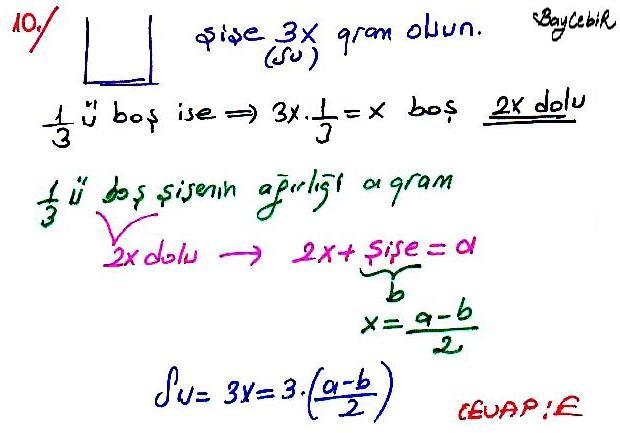 10./ şişe 3x gram olsun. BayCebiR
(su)
1/3 ü boş ise ⇒ 3x·1/3 = x boş 2x dolu
1/3 ü boş şişenin ağırlığı a gram
2x dolu → 2x + şişe = a
b
x = a-b/2
Su = 3x = 3·(a-b/2)
CEVAP: E